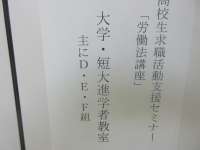 高校生求職活動支援セミナー
「労働法講座」
大学・短大進学者教室
主にD・E・F組